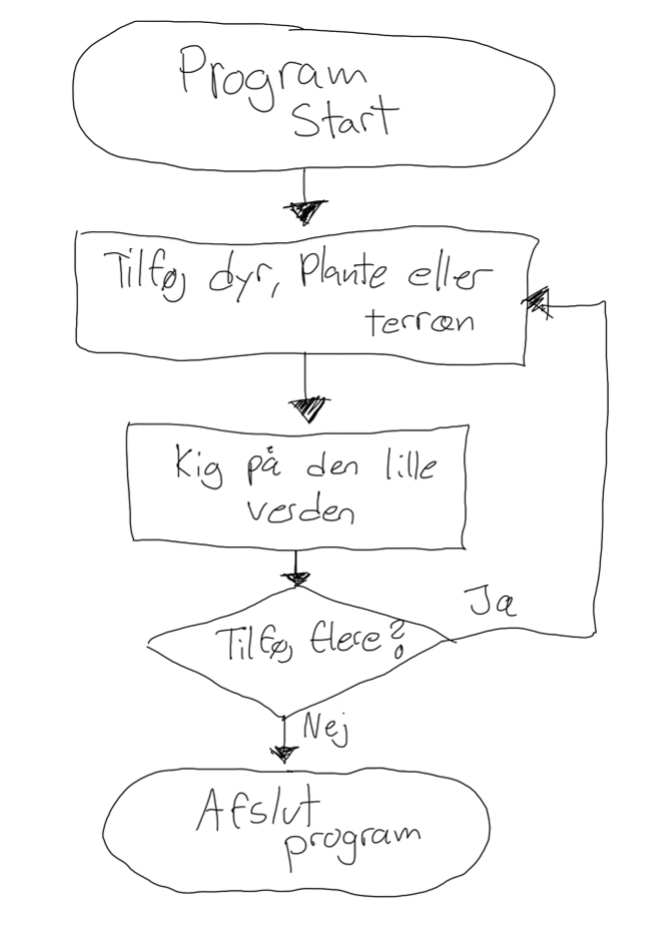 Program
Start
Tilføj dyr, Plante eller
terræn
Kig på den lille
verden
Ja
Tilføj flere?
Nej
Afslut
program